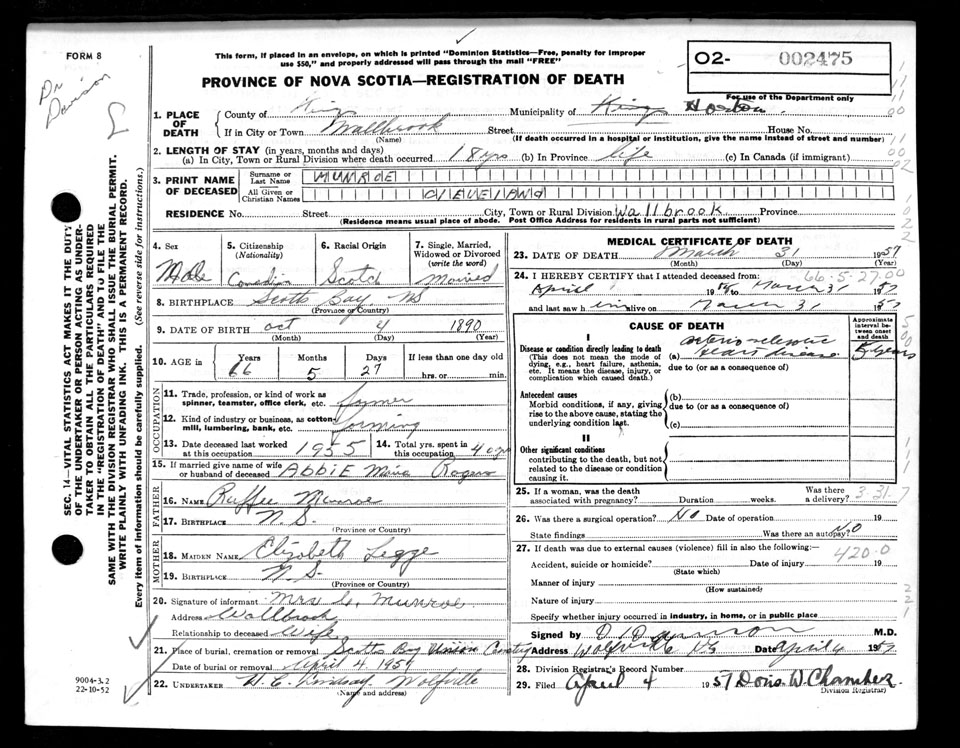 FORM 8
This form, if placed in an envelope, on which is printed "Dominion Statistics—Free, penalty for improper
use $50," and properly addressed will pass through the mail "FREE"
02- 002475
For use of the Department only
Dr
PROVINCE OF NOVA SCOTIA—REGISTRATION OF DEATH
1. PLACE OF DEATH
County of Kings Municipality of Kings
If in City or Town Wallbrook Street House No.
(Name) (If death occurred in a hospital or institution, give the name instead of street and number)
2. LENGTH OF STAY (in years, months and days)
(a) In City, Town or Rural Division where death occurred 18 yrs (b) In Province life (c) In Canada (if immigrant)
3. PRINT NAME OF DECEASED
Surname or Last Name MUNROE
All Given or Christian Names CLEVELAND
RESIDENCE No. Street City, Town or Rural Division Wallbrook Province
(Residence means usual place of abode. Post Office Address for residents in rural parts not sufficient)
SEC. 14—VITAL STATISTICS ACT MAKES IT THE DUTY
OF THE UNDERTAKER OR PERSON ACTING AS UNDER-
TAKER TO OBTAIN ALL THE PARTICULARS REQUIRED
IN THE "REGISTRATION OF DEATH" AND TO FILE THE
SAME WITH THE DIVISION REGISTRAR WHO SHALL ISSUE THE BURIAL PERMIT.
WRITE PLAINLY WITH UNFADING INK. THIS IS A PERMANENT RECORD.
Every item of information should be carefully supplied. (See reverse side for instructions.)
4. Sex Male
5. Citizenship (Nationality) Canadian
6. Racial Origin Scotch
7. Single, Married, Widowed or Divorced (write the word) Married
8. BIRTHPLACE Scotts Bay NS
(Province or Country)
9. DATE OF BIRTH Oct 4 1890
(Month) (Day) (Year)
10. AGE in Years 66 Months 5 Days 27 If less than one day old hrs. or min.
OCCUPATION
11. Trade, profession, or kind of work as spinner, teamster, office clerk, etc. farmer
12. Kind of industry or business, as cotton-mill, lumbering, bank, etc. farming
13. Date deceased last worked at this occupation 1955
14. Total yrs. spent in this occupation 40 yrs
15. If married give name of wife or husband of deceased Abbie Rogers
FATHER
16. NAME Munroe
17. BIRTHPLACE N.S.
(Province or Country)
MOTHER
18. MAIDEN NAME Elizabeth Legge
19. BIRTHPLACE N.S.
(Province or Country)
20. Signature of informant Mrs C. Munroe
Address Wallbrook
Relationship to deceased Wife
21. Place of burial, cremation or removal Scotts Bay Union Cemetery
Date of burial or removal April 4 1957
22. UNDERTAKER W. E. Lindsay Wolfville
(Name and address)
9004-3.2
22-10-52
MEDICAL CERTIFICATE OF DEATH
23. DATE OF DEATH March 31 1957
(Month) (Day) (Year)
66-5-27-00
24. I HEREBY CERTIFY that I attended deceased from:
April 19 to March 31 1957
and last saw him alive on March 31 1957
CAUSE OF DEATH
Approximate interval between onset and death
I
Disease or condition directly leading to death
(This does not mean the mode of dying, e.g., heart failure, asthenia, etc. It means the disease, injury, or complication which caused death.)
(a) arteriosclerotic heart disease 5 years
due to (or as a consequence of)
Antecedent causes
Morbid conditions, if any, giving rise to the above cause, stating the underlying condition last.
(b)
due to (or as a consequence of)
(c)
II
Other significant conditions
contributing to the death, but not related to the disease or condition causing it.
25. If a woman, was the death associated with pregnancy? Duration weeks. Was there a delivery?
3-31-7
26. Was there a surgical operation? No Date of operation 19
State findings Was there an autopsy? No
27. If death was due to external causes (violence) fill in also the following:—
420-0
Accident, suicide or homicide? Date of injury 19
(State which)
Manner of injury
(How sustained)
Nature of injury
Specify whether injury occurred in industry, in home, or in public place
Signed by M.D.
Address Wolfville NS Date April 4 1957
28. Division Registrar's Record Number
29. Filed April 4 1957 Doris W. Chamber
Division Registrar